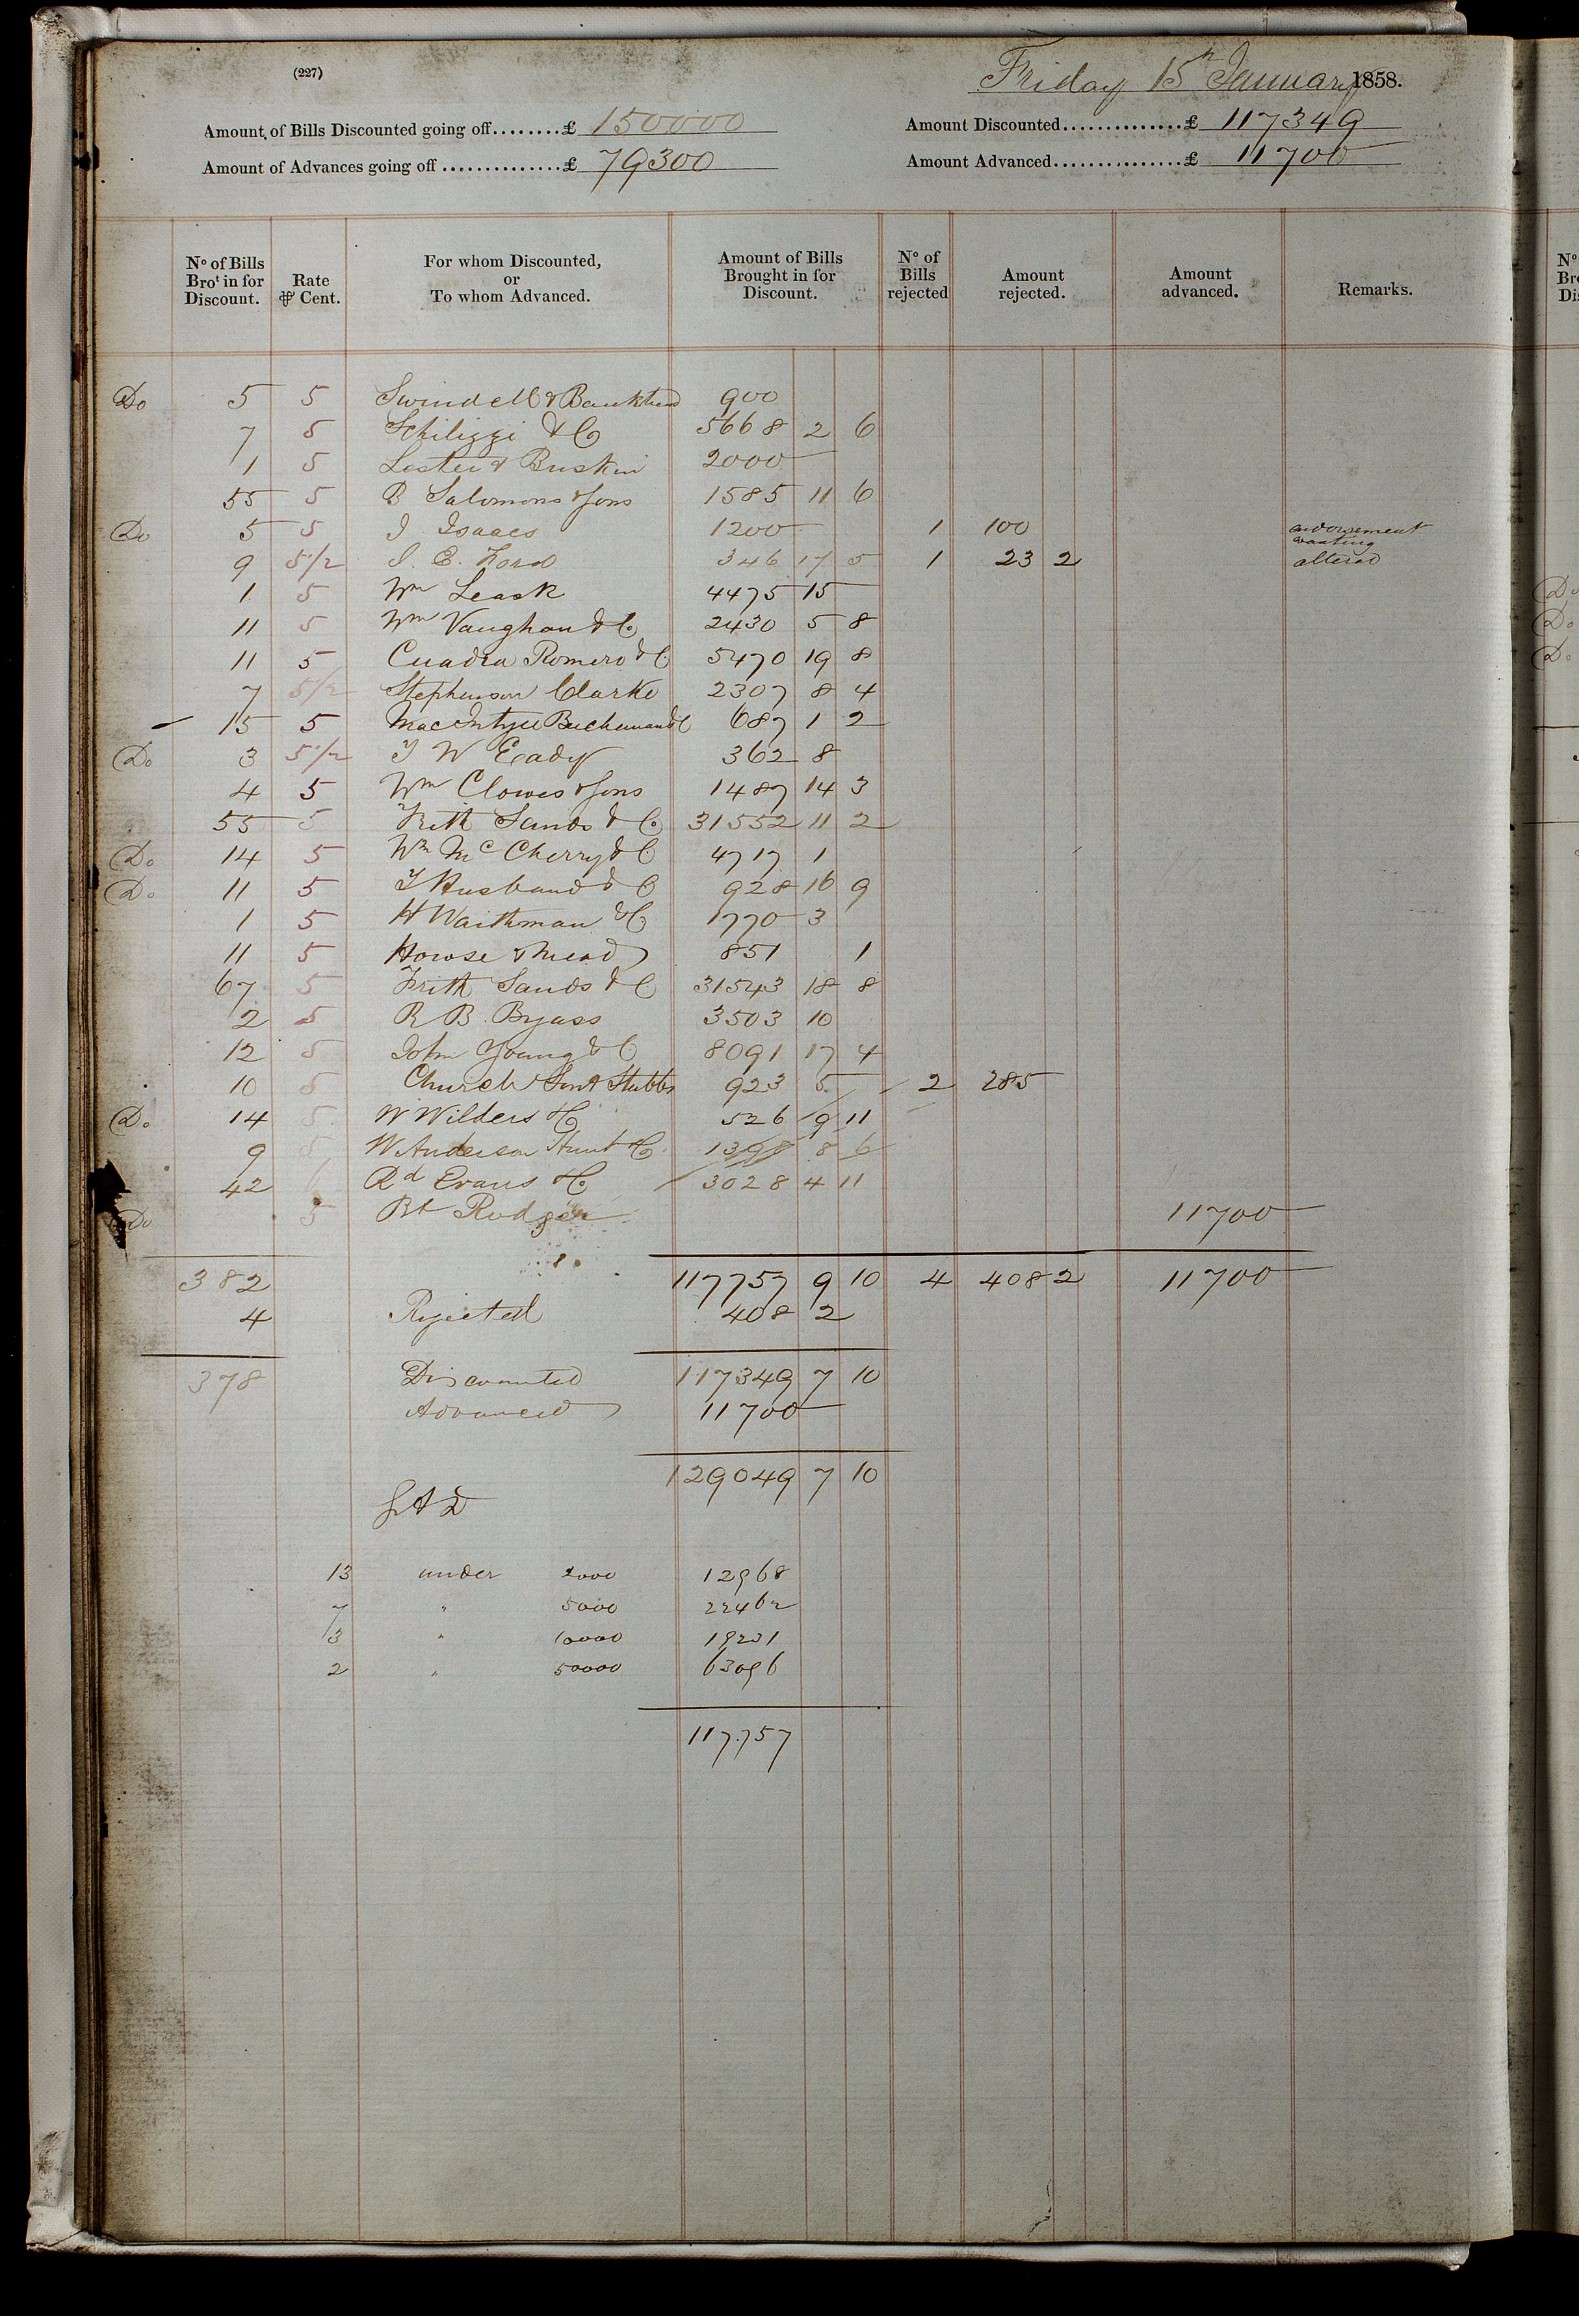 (227)
Friday 15th January 1858.
Amount of Bills Discounted going off........£ 150000
Amount Discounted..............£ 117349
Amount of Advances going off..............£ 79300
Amount Advanced...............£ 11700
No of Bills Brot in for Discount. Rate ⅌ Cent. For whom Discounted, or To whom Advanced. Amount of Bills Brought in for Discount. No of Bills rejected Amount rejected. Amount advanced. Remarks.
Do 5 5 Swindell & 900
7 5 Schilizzi & Co 5668 2 6
1 5 Lester & 2000
55 5 B Salomons & Sons 1585 11 6
Do 5 5 J Isaacs 1200 1 100 endorsement wanting
9 5 1/2 J. E. Lord 346 17 5 1 23 2 altered
1 5 Wm Leask 4475 15
11 5 Wm Vaughan & Co 2430 5 8
11 5 Cuadra Romero & C 5470 19 8
7 5 1/2 Stephenson Clarke 2307 8 4
15 5 MacIntyre Buchanan & C 687 1 2
Do 3 5 1/2 T W Eady 362 8
4 5 Wm Clowes & Sons 1487 14 3
55 5 Frith Sands & Co 31552 11 2
Do 14 5 Wm Mc Cherry & C 4717 1
Do 11 5 T Husband & C 928 16 9
1 5 H Waithman & Co 1770 3
11 5 Howse & Mead 851 1
67 5 Frith Sands & C 31543 18 8
2 5 R B. Byass 3503 10
12 5 John Young & C 8091 17 4
10 5 Church Son & Stubbs 923 5 2 285
Do 14 5 W Wilders & Co 526 9 11
9 5 W Anderson Hunt & Co 1398 8 6
42 Rd Evans & Co 3028 4 11
Do 5 Rt Rodger 11700
382 117757 9 10 4 408 2 11700
4 Rejected 408 2
378 Discounted 117349 7 10
Advanced 11700
129049 7 10
13 under 2000 12968
7 " 5000 22462
3 " 10000 19231
2 " 50000 63096
117757
No
Bro
Dis
Do
Do
Do